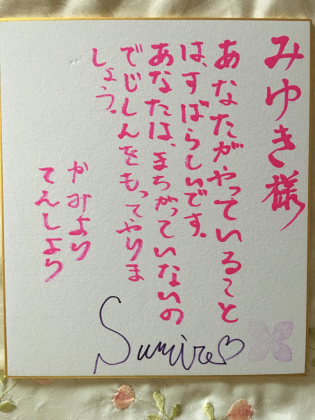 みゆき様
あなたがやっていること
は、すばらしいです。
あなたは、まちがっていないの
でじしんをもってやりま
しょう。
かみより
てんしより
Sumire♡